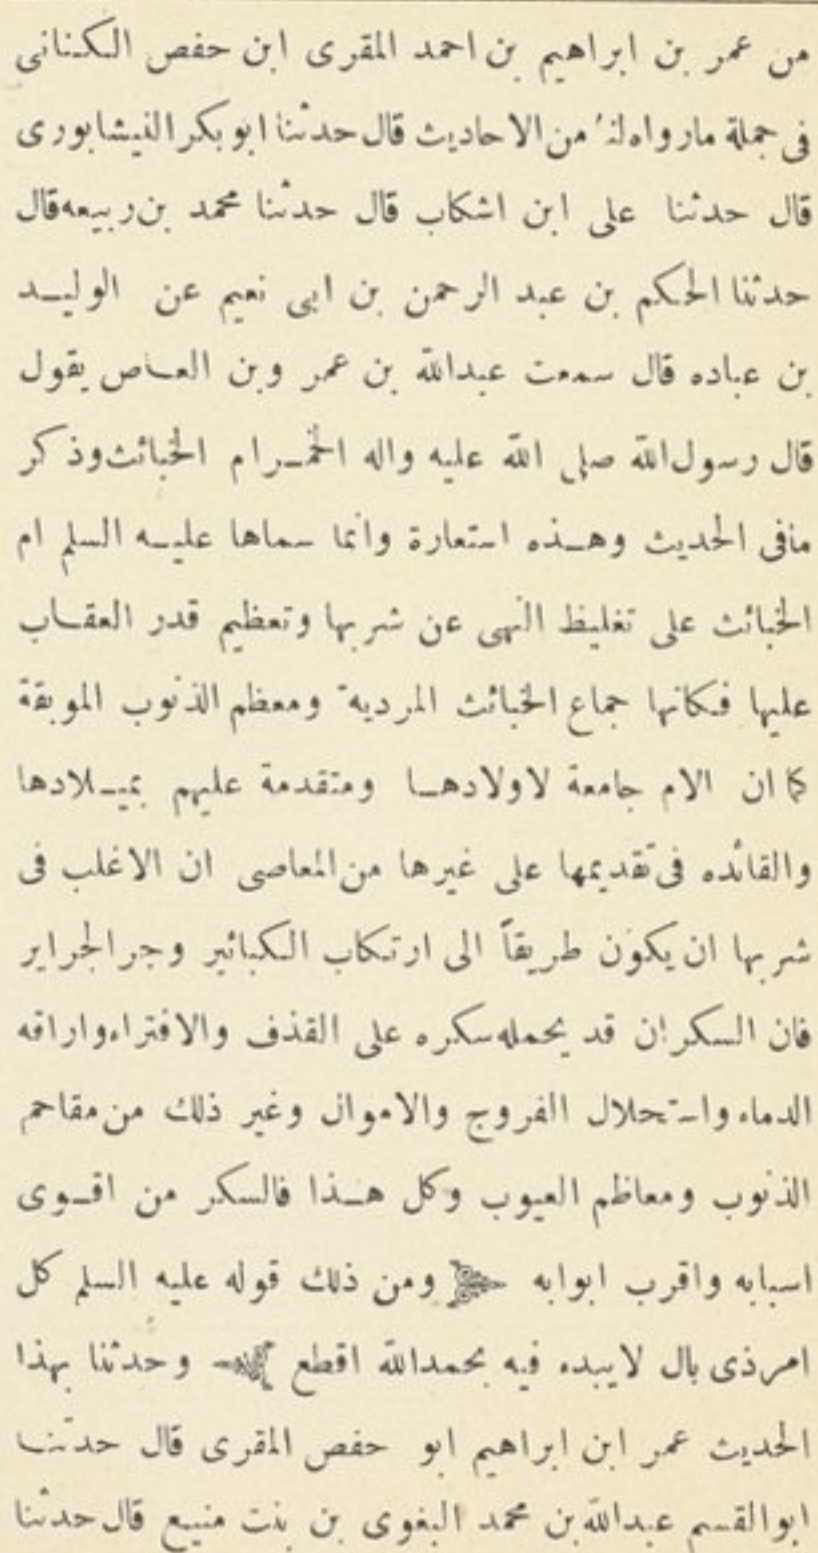 من عمر بن ابراهيم بن احمد المقرى ابن حفص الكنانى
فى جملة مارواه لنا من الاحاديث قال حدثنا ابو بكر النيشابورى
قال حدثنا على ابن اشكاب قال حدثنا محمد بن ربيعه قال
حدثنا الحكم بن عبد الرحمن بن ابى نعيم عن الوليد
بن عباده قال سمعت عبدالله بن عمر وبن العاص يقول
قال رسول الله صلى الله عليه واله الخمر ام الخبائث وذكر
مافى الحديث وهذه استعارة وانما سماها عليه السلم ام
الخبائث على تغليظ النهى عن شربها وتعظيم قدر العقاب
عليها فكانها جماع الخبائث المردية ومعظم الذنوب الموبقة
كما ان الام جامعة لاولادها ومتقدمة عليهم بميلادها
والقائده فى تقديمها على غيرها من المعاصى ان الاغلب فى
شربها ان يكون طريقاً الى ارتكاب الكبائير وجر الجراير
فان السكران قد يحمله سكره على القذف والافتراء واراقه
الدماء واستحلال الفروج والاموال وغير ذلك من مقاحم
الذنوب ومعاظم العيوب وكل هذا فالسكر من اقوى
اسبابه واقرب ابوابه ومن ذلك قوله عليه السلم كل
امرذى بال لايبده فيه بحمدالله اقطع وحدثنا بهذا
الحديث عمر ابن ابراهيم ابو حفص المقرى قال حدثنا
ابوالقسم عبدالله بن محمد البغوى بن بنت منيع قال حدثنا